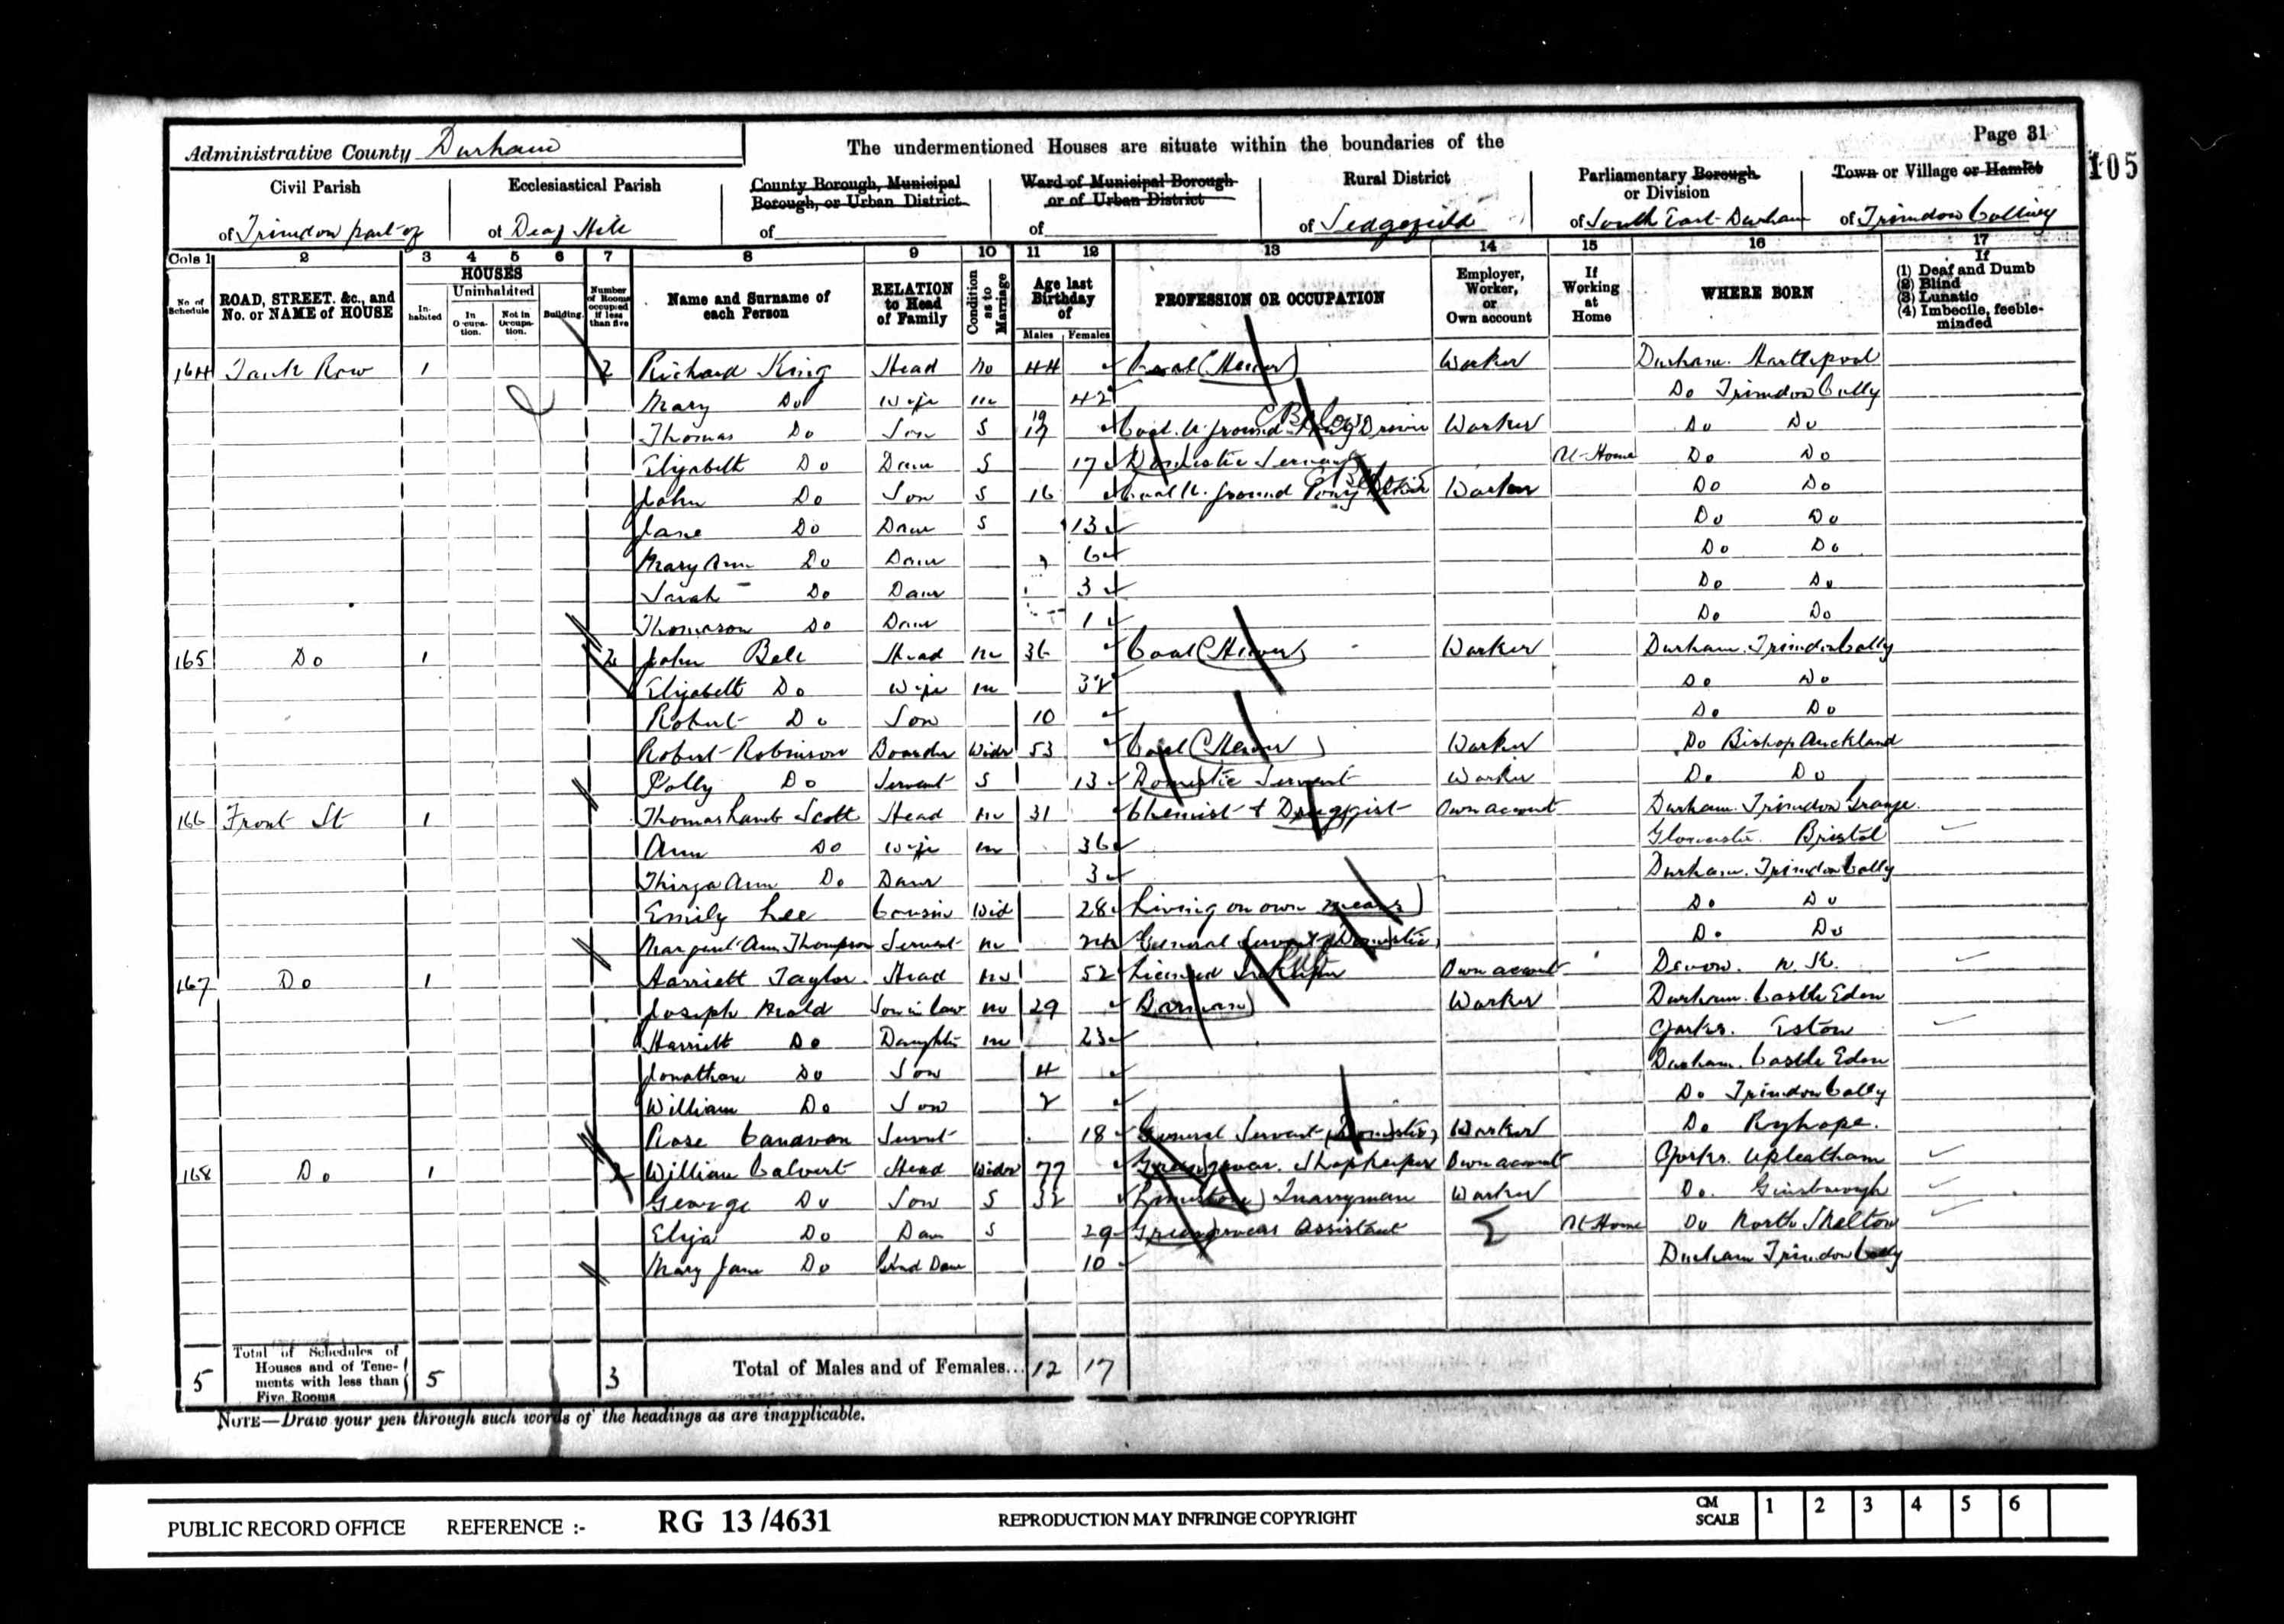 Page 31
105
Administrative County Durham
The undermentioned Houses are situate within the boundaries of the
Civil Parish
of Trimdon part of
Ecclesiastical Parish
of Deaf Hill
County Borough, Municipal Borough, or Urban District
of
Ward of Municipal Borough or of Urban District
of
Rural District
of Sedgefield
Parliamentary Borough or Division
of South East Durham
Town or Village or Hamlet
of Trimdon Colliery
Cols 1 2 3 4 5 6 7 8 9 10 11 12 13 14 15 16 17
No of Schedule
ROAD, STREET, &c., and No. or NAME of HOUSE
HOUSES
Inhabited
Uninhabited
In Occupation.
Not in Occupation.
Building.
Number of Rooms occupied if less than five
Name and Surname of each Person
RELATION to Head of Family
Condition as to Marriage
Age last Birthday of
Males Females
PROFESSION OR OCCUPATION
Employer, Worker, or Own account
If Working at Home
WHERE BORN
If
(1) Deaf and Dumb
(2) Blind
(3) Lunatic
(4) Imbecile, feeble-minded
164 Tank Row 1 2 Richard King Head M 44 Coal (Hewer) Worker Durham. Hartlepool
Mary Do Wife M 42 Do Trimdon Colly
Thomas Do Son S 19 Coal. U. ground Pony Driver Worker Do Do
Elizabeth Do Daur S 17 Domestic Servant At Home Do Do
John Do Son S 16 Coal U. ground Pony Worker Do Do
Jane Do Daur S 13 Do Do
Mary Ann Do Daur 6 Do Do
Sarah Do Daur 3 Do Do
Thomason Do Daur 1 Do Do
165 Do 1 2 John Bell Head M 36 Coal (Hewer) Worker Durham. Trimdon Colly
Elizabeth Do Wife M 32 Do Do
Robert Do Son 10 Do Do
Robert Robinson Boarder Widr 53 Coal (Hewer) Worker Do Bishop Auckland
Polly Do Servant S 13 Domestic Servant Worker Do Do
166 Front St 1 Thomas Lamb Scott Head M 31 Chemist & Druggist Own account Durham. Trimdon Grange
Ann Do Wife M 36 Gloucester. Bristol
Thirza Ann Do Daur 3 Durham. Trimdon Colly
Emily Lee Cousin Wid 28 Living on own means Do Do
Margaret Ann Thompson Servant M 24 General Servant (Domestic) Do Do
167 Do 1 Harriett Taylor Head 52 Licensed Own account Devon. N. K.
Joseph Son in law M 29 Barman Worker Durham. Castle Eden
Harriett Do Daughter M 23 Yorks. Eston
Jonathan Do Son 4 Durham. Castle Eden
William Do Son 2 Do Trimdon Colly
Rose Canavan Servant 18 General Servant (Domestic) Worker Do Ryhope.
168 Do 1 2 William Calvert Head Widr 77 Greengrocer. Shopkeeper Own account Yorks. Upleatham
George Do Son S 32 (Limestone) Quarryman Worker Do. Guisborough
Eliza Do Daur S 29 Greengrocers Assistant At Home Do North Skelton
Mary Jane Do Grnd Daur 10 Durham Trimdon Colly
5 Total of Schedules of Houses and of Tenements with less than Five Rooms 5 3 Total of Males and of Females... 12 17
NOTE—Draw your pen through such words of the headings as are inapplicable.
PUBLIC RECORD OFFICE REFERENCE :- RG 13/4631 REPRODUCTION MAY INFRINGE COPYRIGHT CM SCALE 1 2 3 4 5 6